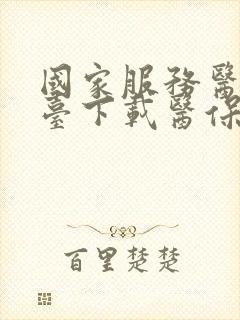 國家服務醫
臺下載醫保
百里楚楚